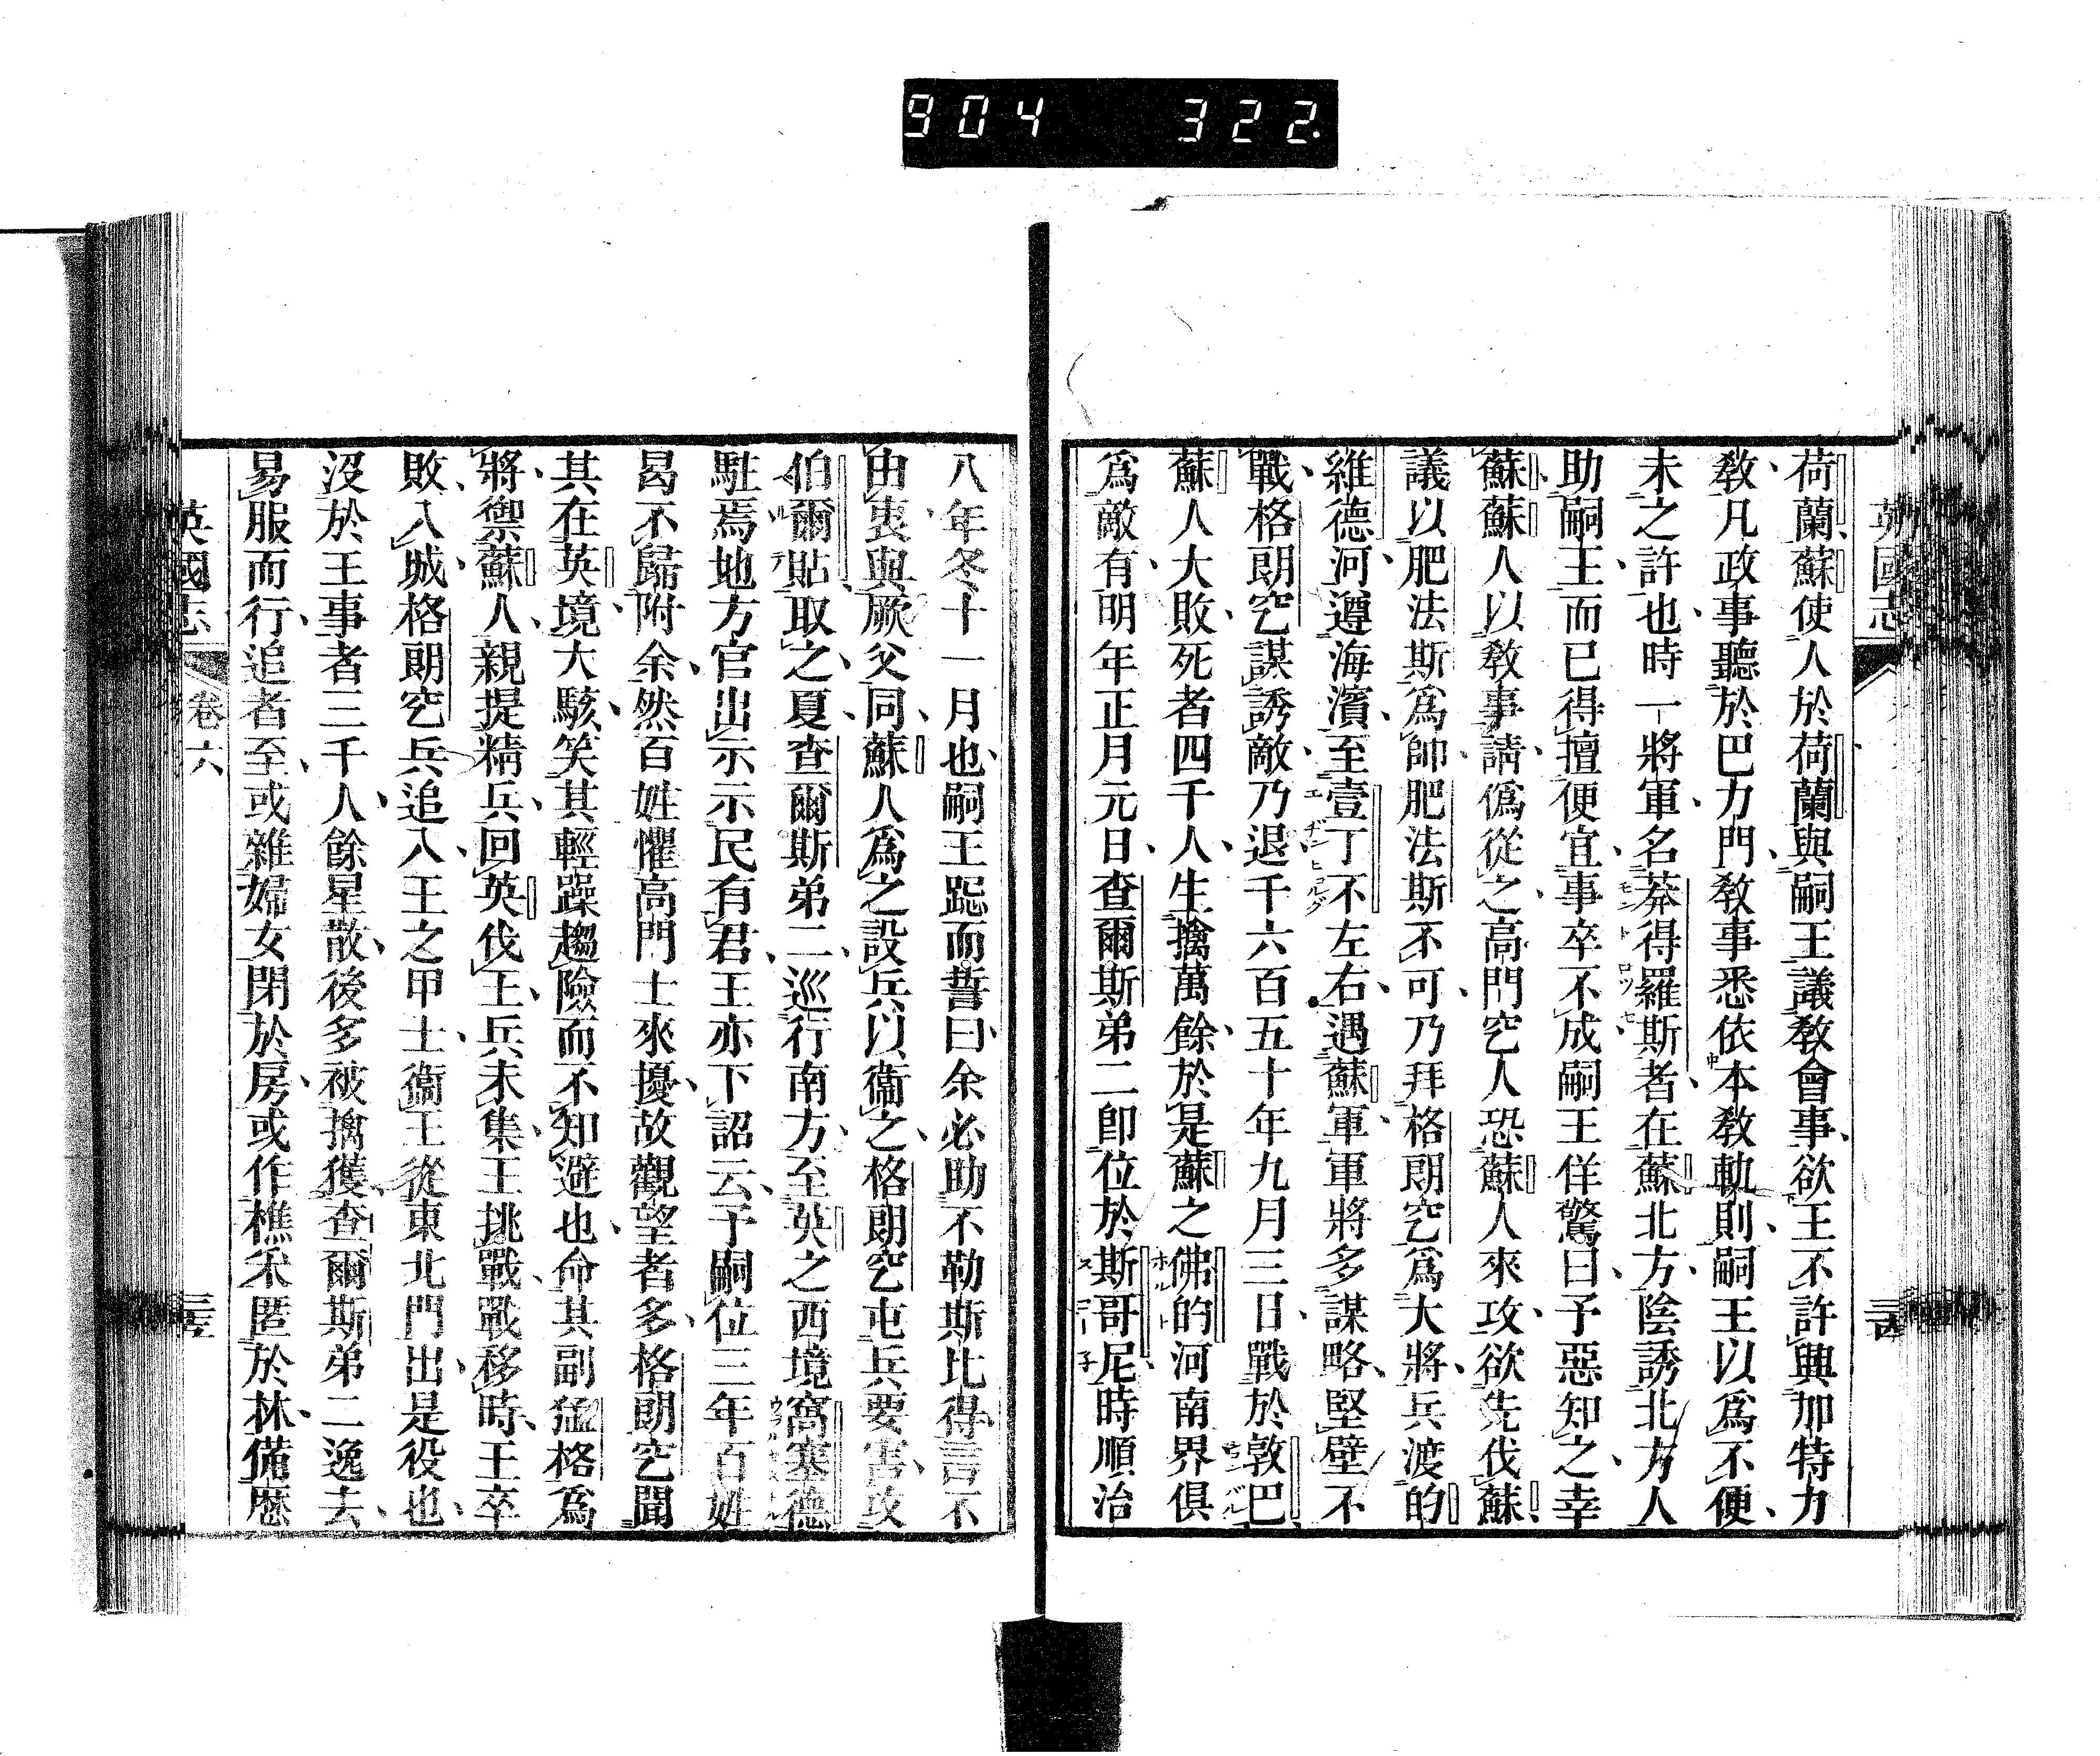 904 322.
英國志
荷蘭蘇使人於荷蘭與嗣王議敎會事欲王不許與加特力
敎凡政事聽於巴力門敎事悉依本敎軌則嗣王以爲不便
未之許也時一將軍名莽得羅斯者在蘇北方陰誘北方人
助嗣王而已得擅便宜事卒不成嗣王佯驚曰予惡知之幸
蘇蘇人以敎事請僞從之高門空人恐蘇人來攻欲先伐蘇
議以肥法斯爲帥肥法斯不可乃拜格朗空爲大將兵渡的
維德河遵海濱至壹丁不左右遇蘇軍軍將多謀略堅壁不
戰格朗空謀誘敵乃退千六百五十年九月三日戰於敦巴
蘇人大敗死者四千人生擒萬餘於是蘇之佛的河南界俱
爲敵有明年正月元日查爾斯弟二卽位於斯哥尼時順治
八年冬十一月也嗣王跽而誓曰余必助不勒斯比得言不
由衷與厥父同蘇人爲之設兵以衞之格朗空屯兵要害攻
伯爾貼取之夏查爾斯弟二巡行南方至英之西境窩塞德
駐焉地方官出示示民有君王亦下詔云予嗣位三年百姓
曷不歸附余然百姓懼高門士來擾故觀望者多格朗空聞
其在英境大駭笑其輕躁趨險而不知避也命其副猛格爲
將禦蘇人親提精兵回英伐王兵未集王挑戰戰移時王卒
敗入城格朗空兵追入王之甲士衞王從東北門出是役也
沒於王事者三千人餘星散後多被擒獲查爾斯弟二逸去
易服而行追者至或雜婦女閉於房或作樵禾匿於林備歷
英國志 卷六